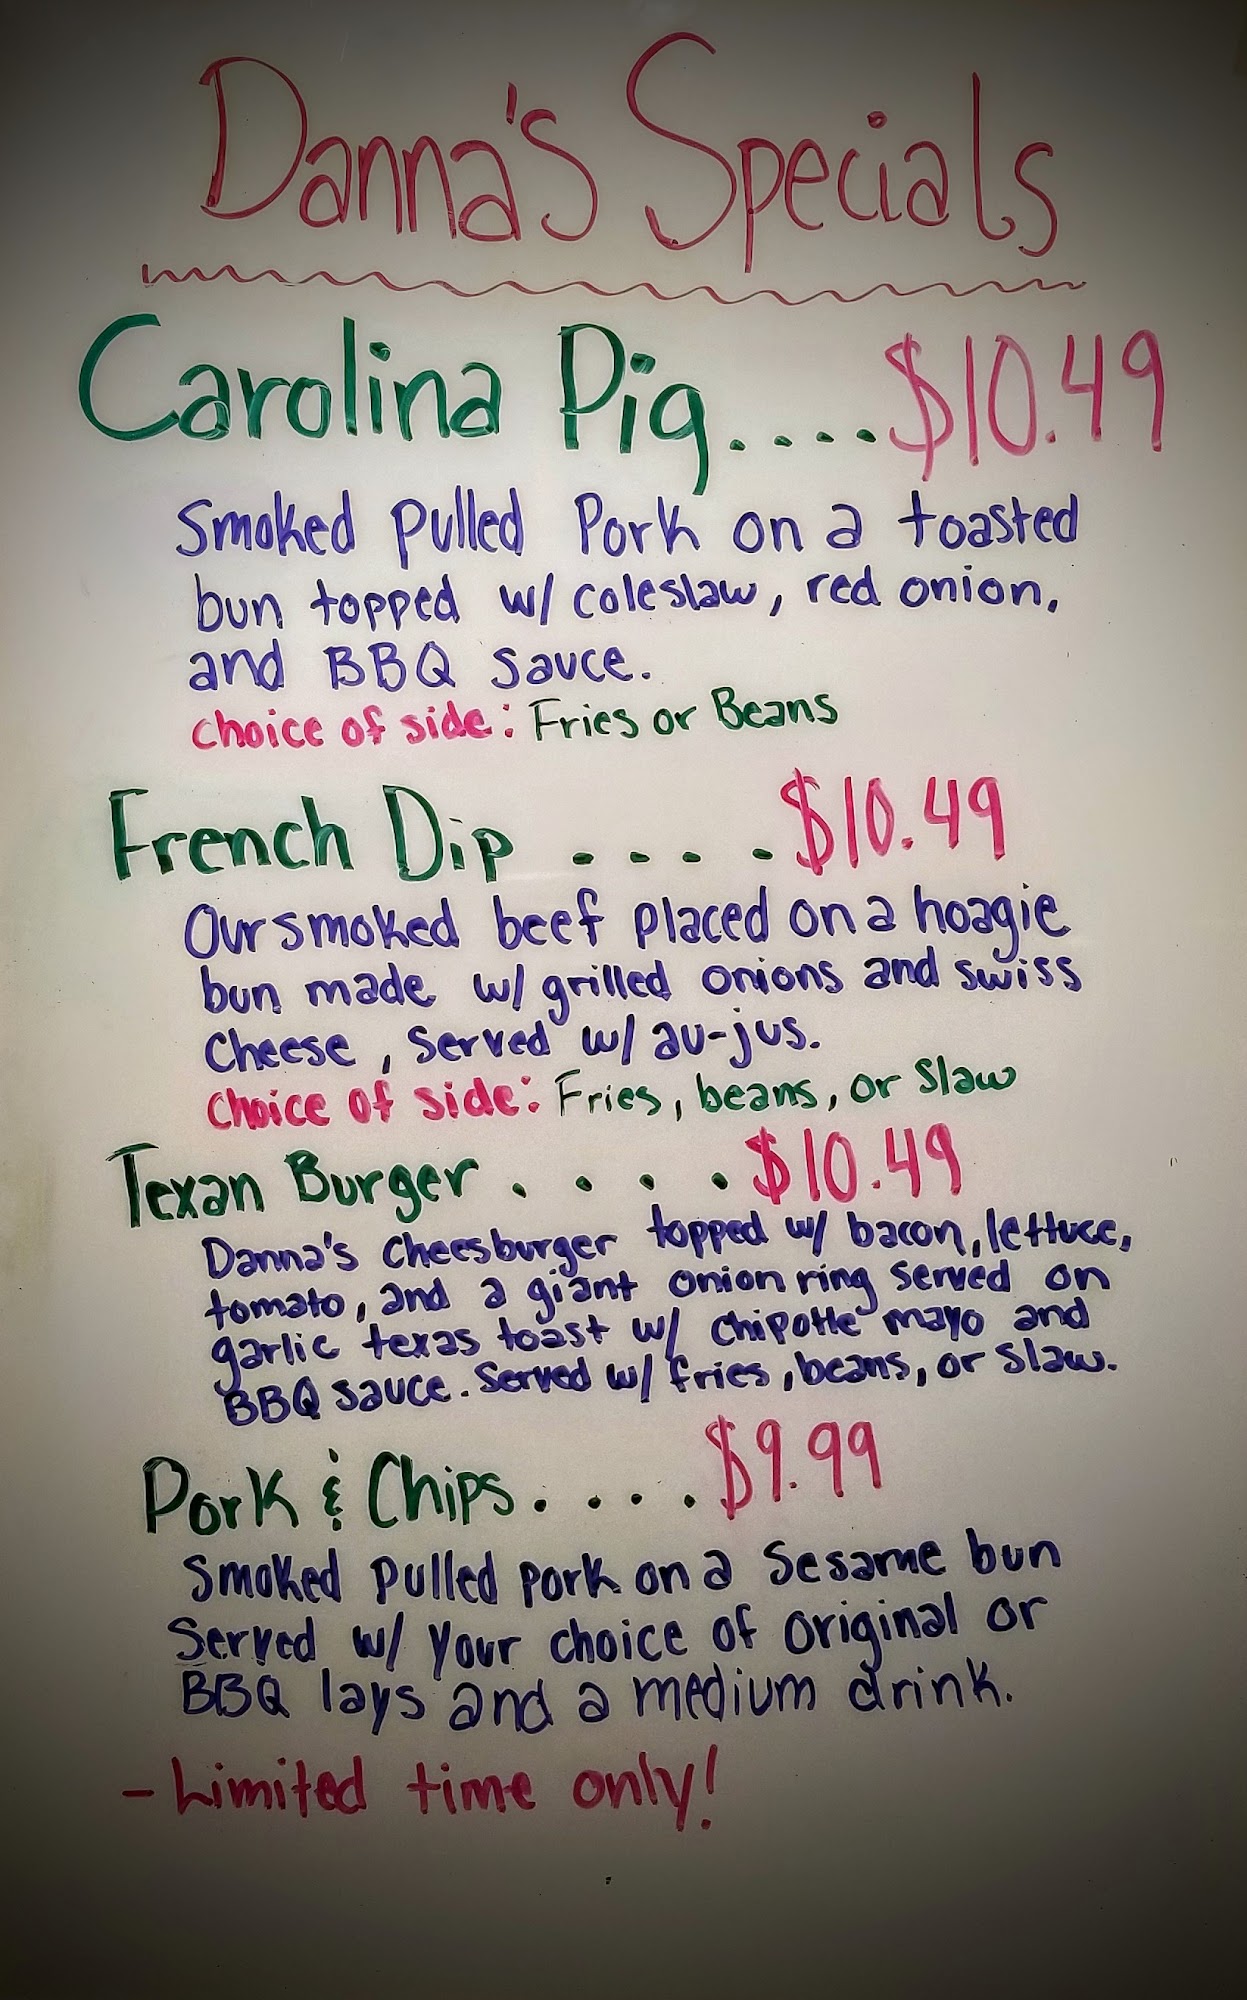 Danna's Specials
Carolina Pig....$10.49
Smoked pulled Pork on a toasted
bun topped w/ coleslaw, red onion,
and BBQ sauce.
choice of side: Fries or Beans
French Dip ....$10.49
Our smoked beef placed on a hoagie
bun made w/ grilled onions and swiss
Cheese, served w/ au-jus.
choice of side: Fries, beans, or slaw
Texan Burger....$10.49
Danna's cheesburger topped w/ bacon, lettuce,
tomato, and a giant onion ring served on
garlic texas toast w/ chipotle mayo and
BBQ sauce. Served w/ fries, beans, or slaw.
Pork & Chips....$9.99
Smoked pulled pork on a sesame bun
Served w/ your choice of original or
BBQ lays and a medium drink.
- Limited time only!